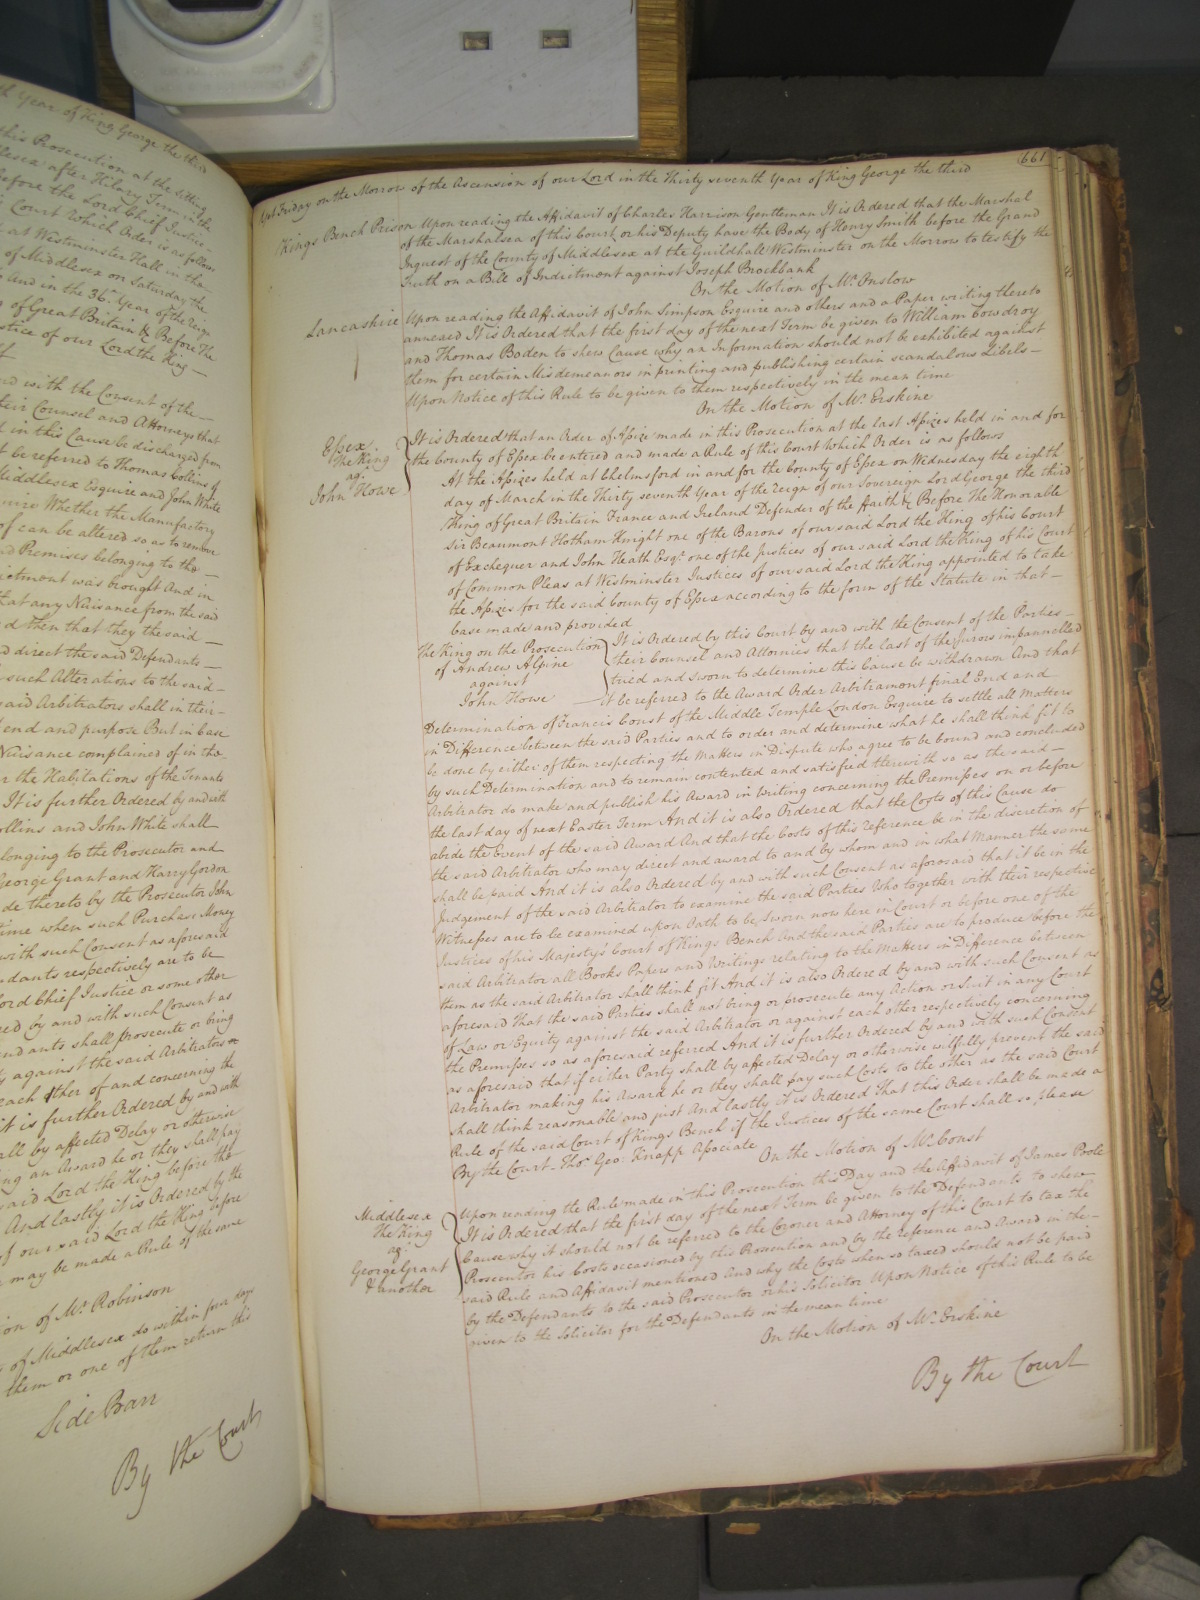 th Year of King George the third
this Prosecution at the Sitting
dlesex after Hilary Term in the
before the Lord Chief Justice
Court Which Order is as follows
at Westminster Hall in the
of Middlesex on Saturday the
And in the 36th Year of the Reign
of Great Britain & Before The
stice of our Lord the King
with the Consent of the
their Counsel and Attorneys that
in this Cause be discharged from
be referred to Thomas Collins of
Middlesex Esquire and John White
Whether the Manufactory
of can be altered so as to remove
Premises belonging to the
ictment was brought And in
that any Nuisance from the said
d then that they the said
direct the said Defendants
such Alterations to the said
said Arbitrators shall in their
end and purpose But in Case
Nuisance complained of in the
r the Habitations of the Tenants
It is further Ordered by and with
ollins and John White shall
longing to the Prosecutor and
George Grant and Harry Gordon
de thereto by the Prosecutor John
Time when such Purchase Money
with such Consent as aforesaid
dants respectively are to be
ord Chief Justice or some other
red by and with such Consent as
endants shall prosecute or bring
against the said Arbitrators or
each other of and concerning the
it is further Ordered by and with
all by affected Delay or otherwise
ing an Award he or they shall pay
said Lord the King before the
And lastly it is Ordered by the
of our said Lord the King before
may be made a Rule of the same
ion of Mr Robinson
of Middlesex do within four days
them or one of them return this
Side Barr
By the Court
661
Yet Friday on the Morrow of the Ascension of our Lord in the Thirty seventh Year of King George the third
Kings Bench Prison Upon reading the Affidavit of Charles Harrison Gentleman It is Ordered that the Marshal
of the Marshalsea of this Court or his Deputy have the Body of Henry Smith before the Grand
Inquest of the County of Middlesex at the Guildhall Westminster on the Morrow to testify the
Truth on a Bill of Indictment against Joseph Brockbank
On the Motion of Mr Onslow
Lancashire Upon reading the Affidavit of John Simpson Esquire and others and a Paper writing thereto
annexed It is Ordered that the first day of the next Term be given to William Cowdroy
and Thomas Boden to shew Cause why an Information should not be exhibited against
them for certain Misdemeanors in printing and publishing certain scandalous Libels
Upon Notice of this Rule to be given to them respectively in the mean time
On the Motion of Mr Erskine
Essex
The King
agt
John Howe
It is Ordered that an Order of Assize made in this Prosecution at the last Assizes held in and for
the County of Essex be entered and made a Rule of this Court which Order is as follows
At the Assizes held at Chelmsford in and for the County of Essex on Wednesday the eighth
day of March in the Thirty seventh Year of the reign of our Sovereign Lord George the third
King of Great Britain France and Ireland Defender of the ffaith & Before The Honorable
Sir Beaumont Hotham Knight one of the Barons of our said Lord the King of his Court
of Exchequer and John Heath Esqr one of the Justices of our said Lord the King of his Court
of Common Pleas at Westminster Justices of our said Lord the King appointed to take
the Assizes for the said County of Essex according to the form of the Statute in that
Case made and provided
The King on the Prosecution
of Andrew Alpine
against
John Howe
It is Ordered by this Court by and with the Consent of the Parties
their Counsel and Attornies that the last of the Jurors impannelled
tried and sworn to determine this Cause be withdrawn And that
it be referred to the Award Order Arbitrament final End and
Determination of Francis Const of the Middle Temple London Esquire to settle all Matters
in Difference between the said Parties and to order and determine what he shall think fit to
be done by either of them respecting the Matters in Dispute who agree to be bound and concluded
by such Determination and to remain contented and satisfied therewith so as the said
Arbitrator do make and publish his Award in Writing concerning the Premisses on or before
the last day of next Easter Term And it is also Ordered that the Costs of this Cause do
abide the Event of the said Award And that the Costs of this reference be in the discretion of
the said Arbitrator who may direct and award to and by whom and in what Manner the same
shall be paid And it is also Ordered by and with such Consent as aforesaid that it be in the
Judgement of the said Arbitrator to examine the said Parties Who together with their respective
Witnesses are to be examined upon Oath to be sworn now here in Court or before one of the
Justices of his Majesty's Court of Kings Bench And the said Parties are to produce before the
said Arbitrator all Books Papers and Writings relating to the Matters in Difference between
them as the said Arbitrator shall think fit And it is also Ordered by and with such Consent as
aforesaid That the said Parties shall not bring or prosecute any Action or Suit in any Court
of Law or Equity against the said Arbitrator or against each other respectively concerning
the Premisses so as aforesaid referred And it is further Ordered by and with such Consent
as aforesaid that if either Party shall by affected Delay or otherwise wilfully prevent the said
Arbitrator making his Award he or they shall pay such Costs to the other as the said Court
shall think reasonable and just And lastly it is Ordered That this Order shall be made a
Rule of the said Court of Kings Bench if the Justices of the same Court shall so please
By the Court Thos Geo: Knapp Associate On the Motion of Mr Const
Middlesex
The King
agt
George Grant
& another
Upon reading the Rule made in this Prosecution this Day and the Affidavit of James Poole
It is Ordered that the first day of the next Term be given to the Defendants to shew
Cause why it should not be referred to the Coroner and Attorney of this Court to tax the
Prosecutor his Costs occasioned by this Prosecution and by the reference and Award in the
said Rule and Affidavit mentioned And why the Costs when so taxed should not be paid
by the Defendants to the said Prosecutor or his Solicitor Upon Notice of this Rule to be
given to the Solicitor for the Defendants in the mean time
On the Motion of Mr Erskine
By the Court